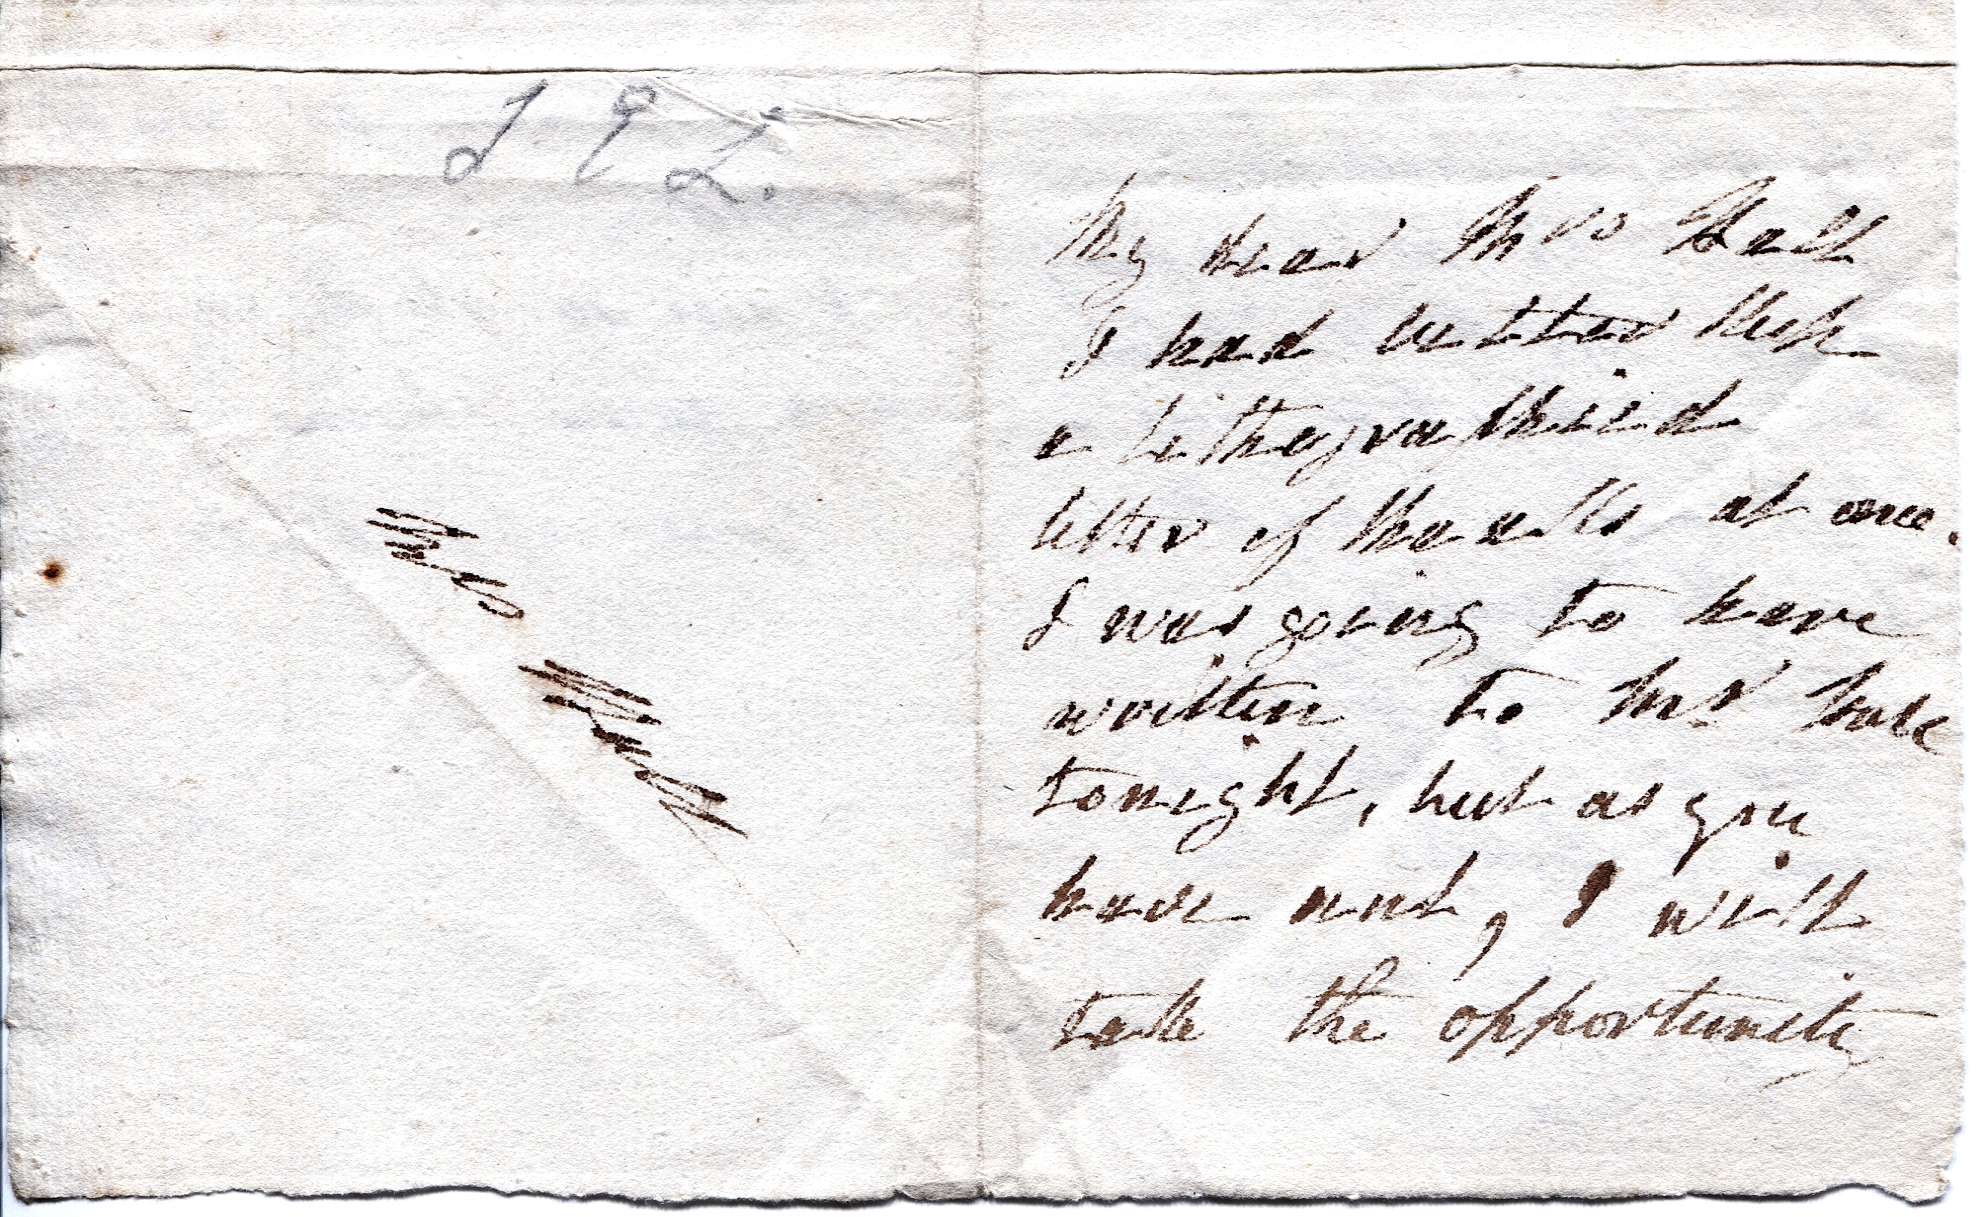 L E L.
Mrs Hall
My dear Mrs Hall
I had better keep
a lithographied
letter of thanks at once.
I was going to have
written to Mr Hall
tonight, but as you
have sent, I will
take the opportunity